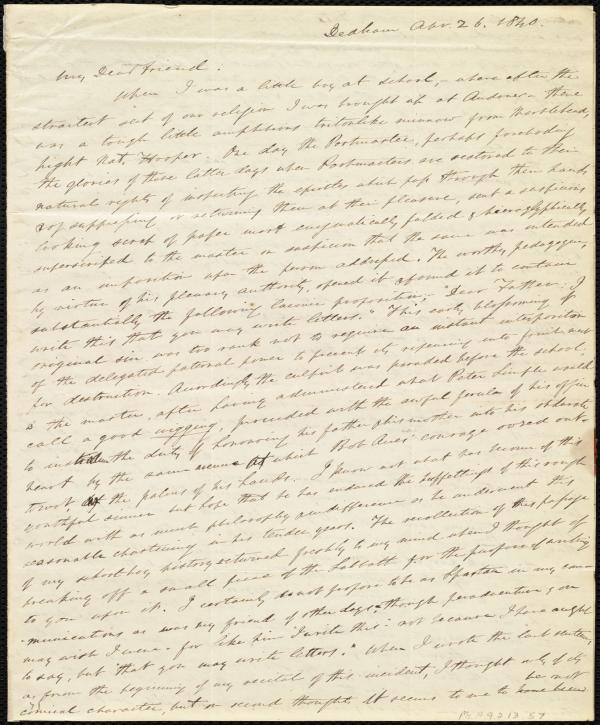 Dedham Apr. 26. 1840.
My Dear Friend.
When I was a little boy at school, where after the
straitest sect of our religion I was brought up at Andover there
was a tough little amphibious tritonlike minnow from Marblehead,
hight Nat, Hooper. One day the Postmaster, perhaps foreboding
the glories of these latter days when Postmasters are restored to their
natural rights of inspecting the epistles which pass through their hands
& of suppressing or returning them at their pleasure, sent a suspicious
looking scrap of paper most enigmatically folded & hieroglyphically
superscribed to the master on suspicion that the same was intended
as an imposition upon the person addressed. The worthy pedagogue,
by virtue of his plenary authority, opened it & found it to contain
substantially the following laconic proposition; "Dear Father: I
write this that you may write letters." This early blossoming of
original sin was too rank not to require an instant interposition
of the delegated paternal power to prevent its ripening into fruit meet
for destruction. Accordingly the culprit was paraded before the school
& the master, after having administered what Peter Simple would
call a good wigging, proceeded with the awful ferula of his office
to the duty of honouring his father & his mother into his obdurate
heart by the same at which Bob Acres' courage oozed out—
towit, the palms of his hands. I know not what has become of this
youthful sinner but hope that he has endured the buffettings of this rough
world with as much philosophy & indifference as he underwent this
seasonable chastening in his tender years. The recollection of this passage
of my schoolboy history returned freshly to my mind when I thought of
breaking off a small piece of the Sabbath for the purpose of
to you upon it. I certainly do not propose to be as Spartan in my com-
munications as was my friend of other days—though peradventure you
may wish I were—for like him "I write this" not because I have aught
to say, but "that you may write letters." When I wrote the last sentence,
as from the beginning of my recital of this incident, I thought only of its
comical character, but on second thoughts it seems to me to be not